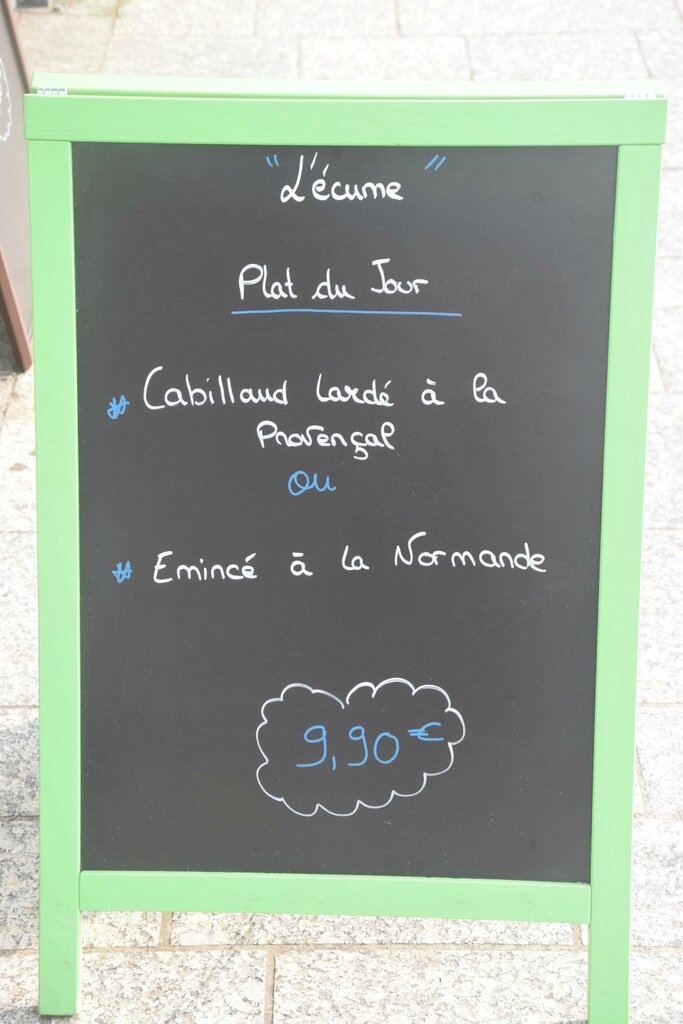 "L'écume"
Plat du Jour
Cabillaud lardé à la
Provençal
ou
Emincé à la Normande
9,90€